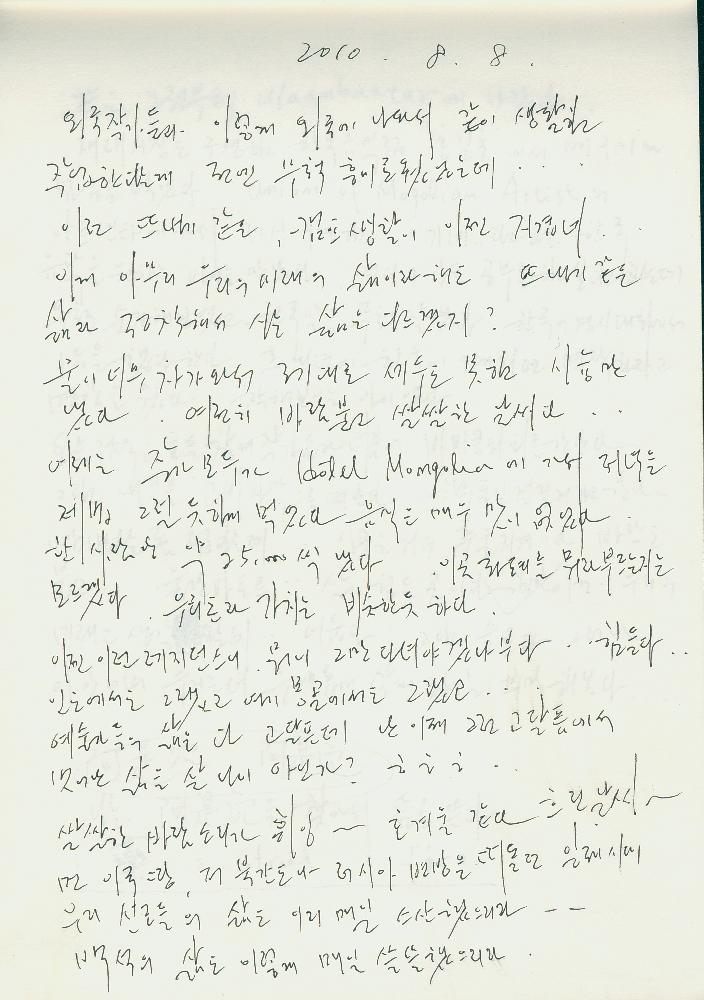 2010. 8. 8.
외국작가들과 이렇게 외국에 나와서 같이 생활하고
작업한다는게 전엔 무척 흥미로웠었는데 ...
이런 뜨내기 같은, 집없는 생활이 이젠 지겹네..
이제 아무리 우리의 미래의 삶이라해도 뜨내기 같은
삶과 국가 정착해서 사는 삶은 다르겠지?
물이 너무 차가와서 제대로 세수도 못하고 시늉만
냈다. 여전히 바람불고 쌀쌀한 날씨다...
어제는 모두가 Hotel Mongolia에 가서 저녁을
제법 그럴듯하게 먹었다 음식은 매우 맛이 없었다.
한 사람당 약 25,000씩 냈다. 이곳 화폐를 뭐라부르는지는
모르겠다. 우리돈과 가치는 비슷한듯 하다.
이젠 이런 레지던스니 뭐니 그만 다녀야겠나부다.. 힘들다..
인도에서도 그랬고 여기 몽골에서도 그랬고...
예술가들의 삶은 다 고달픈데 난 이제 그런 고달픔에서
벗어난 삶을 살 나이 아닌가? ㅎㅎㅎ..
쌀쌀한 바람소리가 휘잉~ 초겨울 같다 흐린날씨~
먼 이국땅, 저 북간도나 러시아 변방을 떠돌던 일제시대
우리 선조들의 삶도 이리 매일 스산했으리라--
백석의 삶도 이렇게 매일 쓸쓸했으리라.